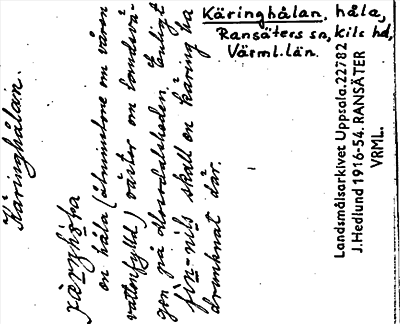 Käringhålan, håla,
Ransäters sn, Kils hd,
Värml. län.
Käringhålan.
en håla (åtminstone om våren
vattenfylld) väster om landsvä-
gen på Alvordalsheden. Enligt
fìn-nils skall en käring ha
drunknat där.
Landsmålsarkivet Uppsala. 22782
J. Hedlund 1916-54. RANSÄTER
VRML.